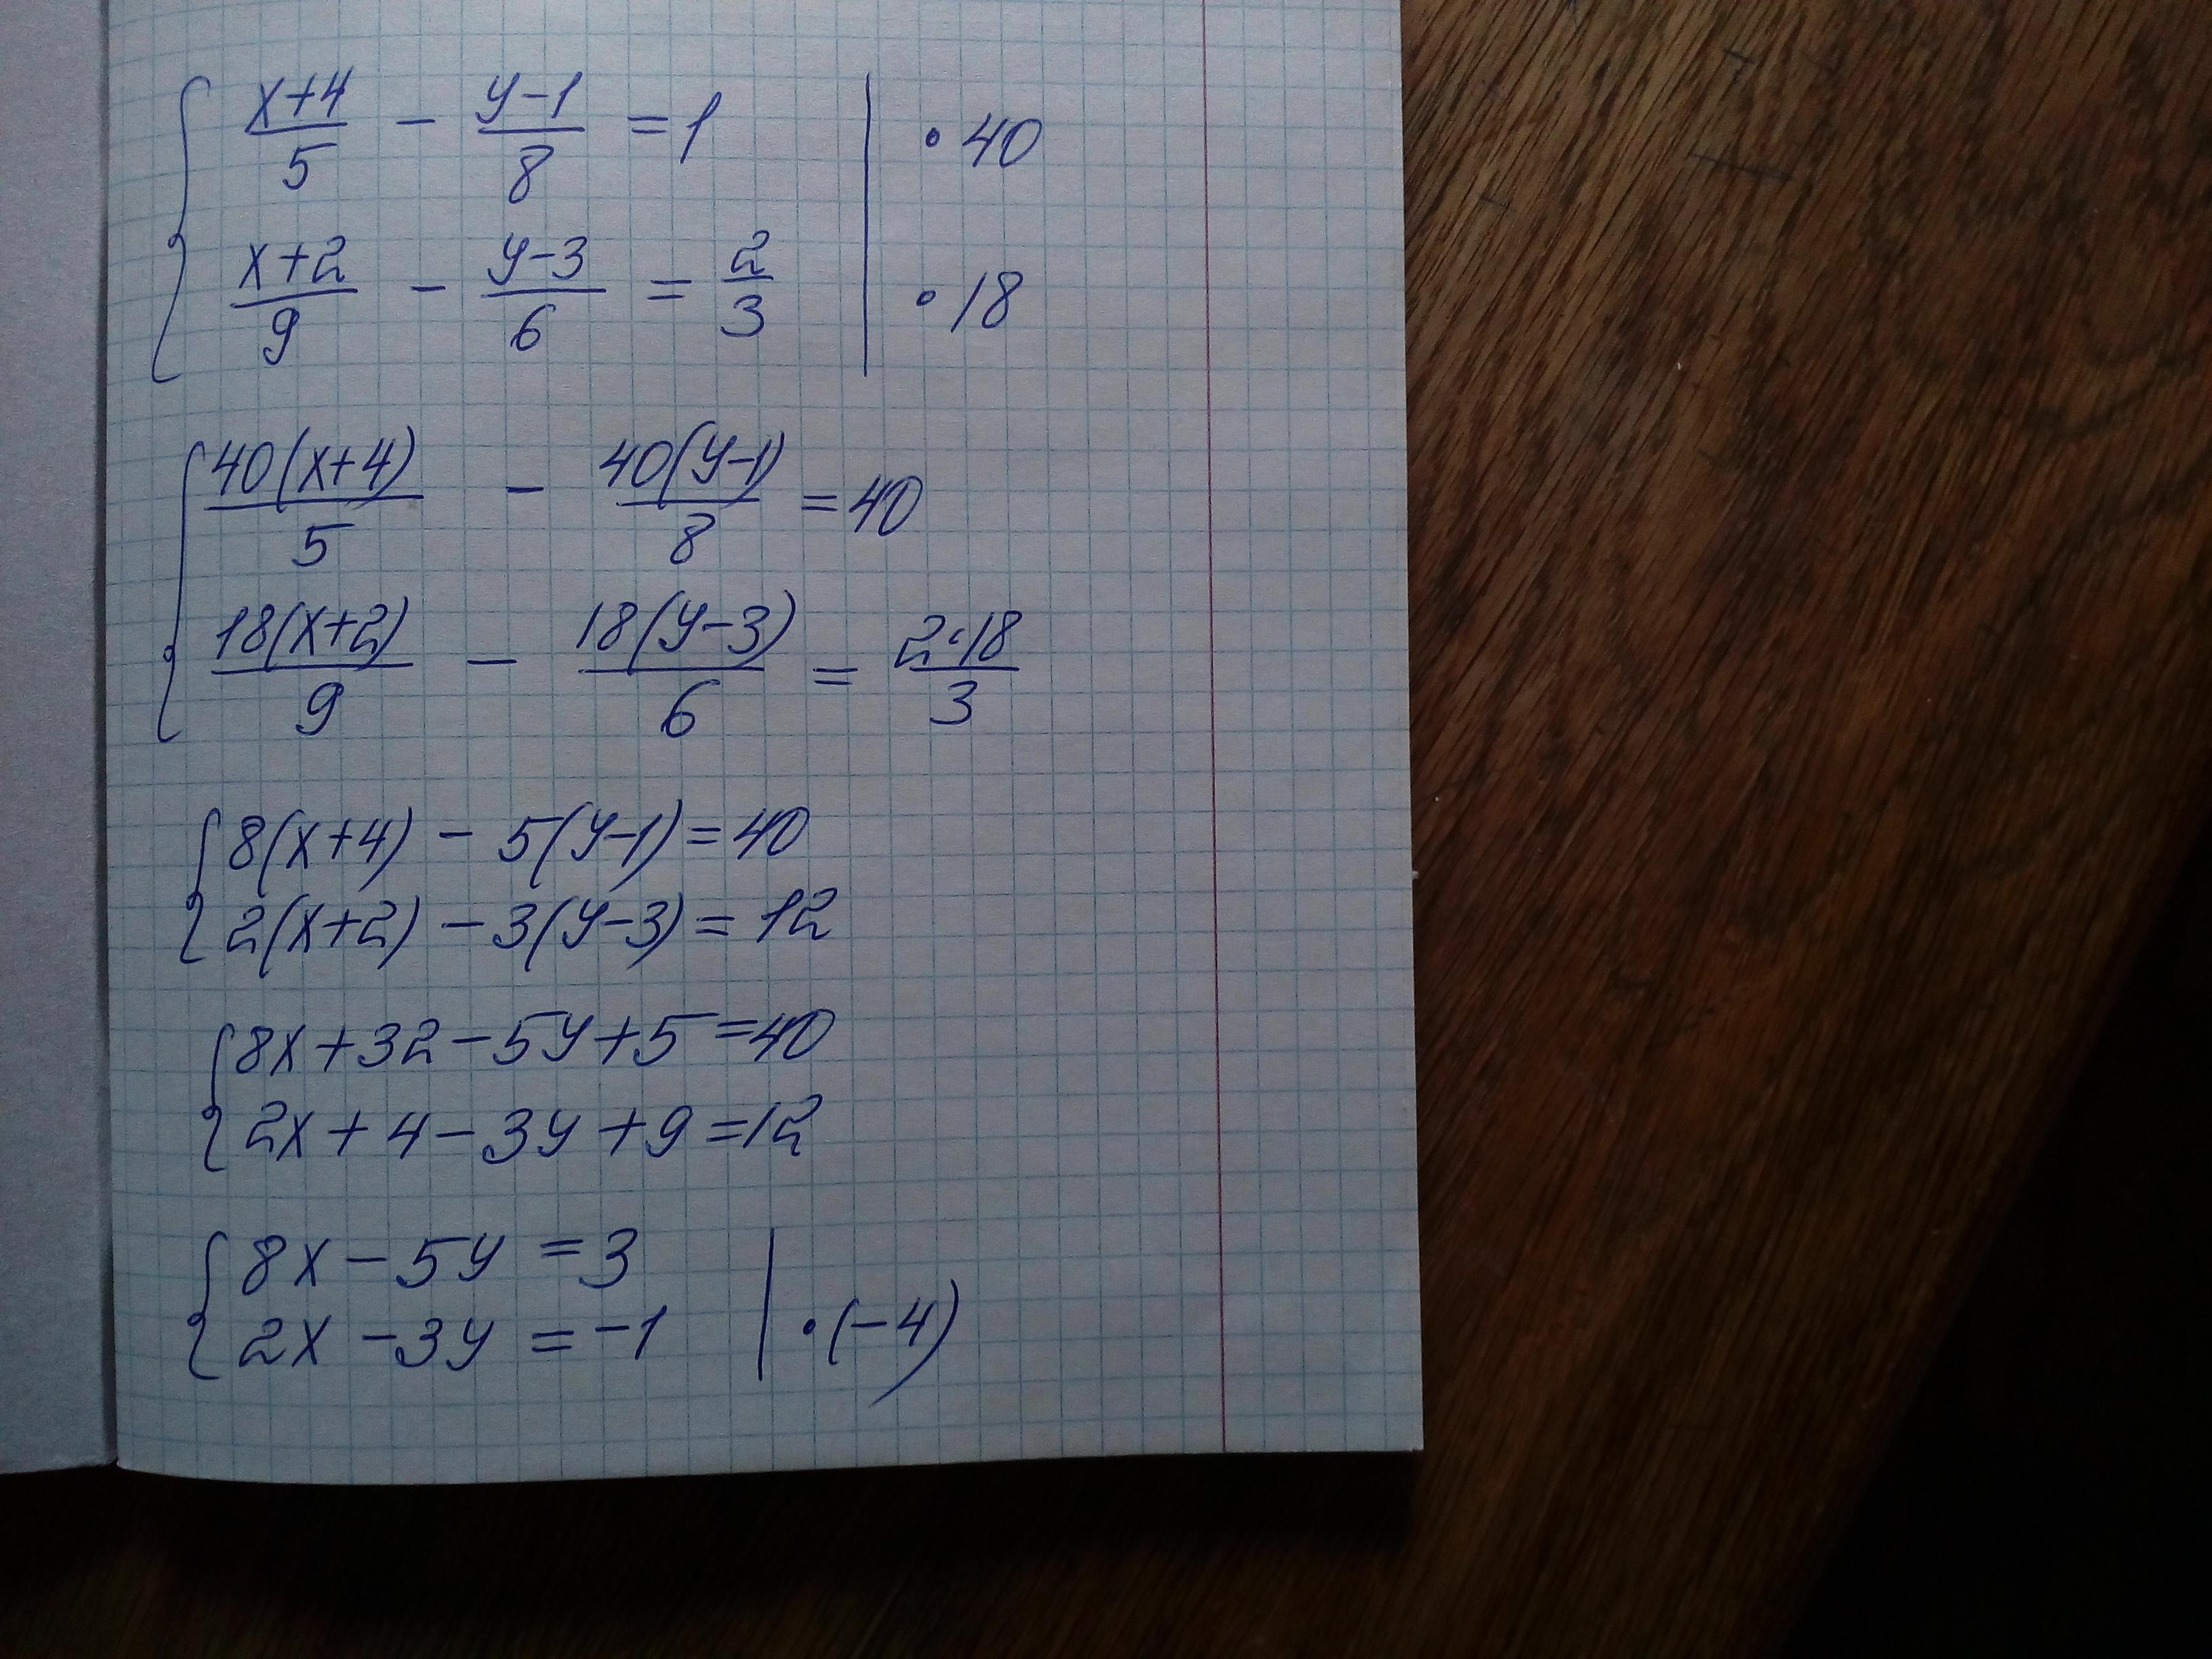 { (x+4)/5 - (y-1)/8 = 1 | · 40
(x+2)/9 - (y-3)/6 = 2/3 | · 18
{ 40(x+4)/5 - 40(y-1)/8 = 40
18(x+2)/9 - 18(y-3)/6 = 2·18/3
{ 8(x+4) - 5(y-1) = 40
2(x+2) - 3(y-3) = 12
{ 8x+32-5y+5=40
2x+4-3y+9=12
{ 8x-5y=3
2x-3y=-1 | · (-4)